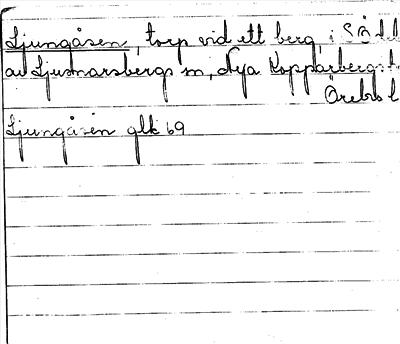 Ljungåsen, torp vid ett berg i S. ö. del.
av Ljusnarsbergs sn, Nya Kopparbergs
Örebro l
Ljungåsen glk 69